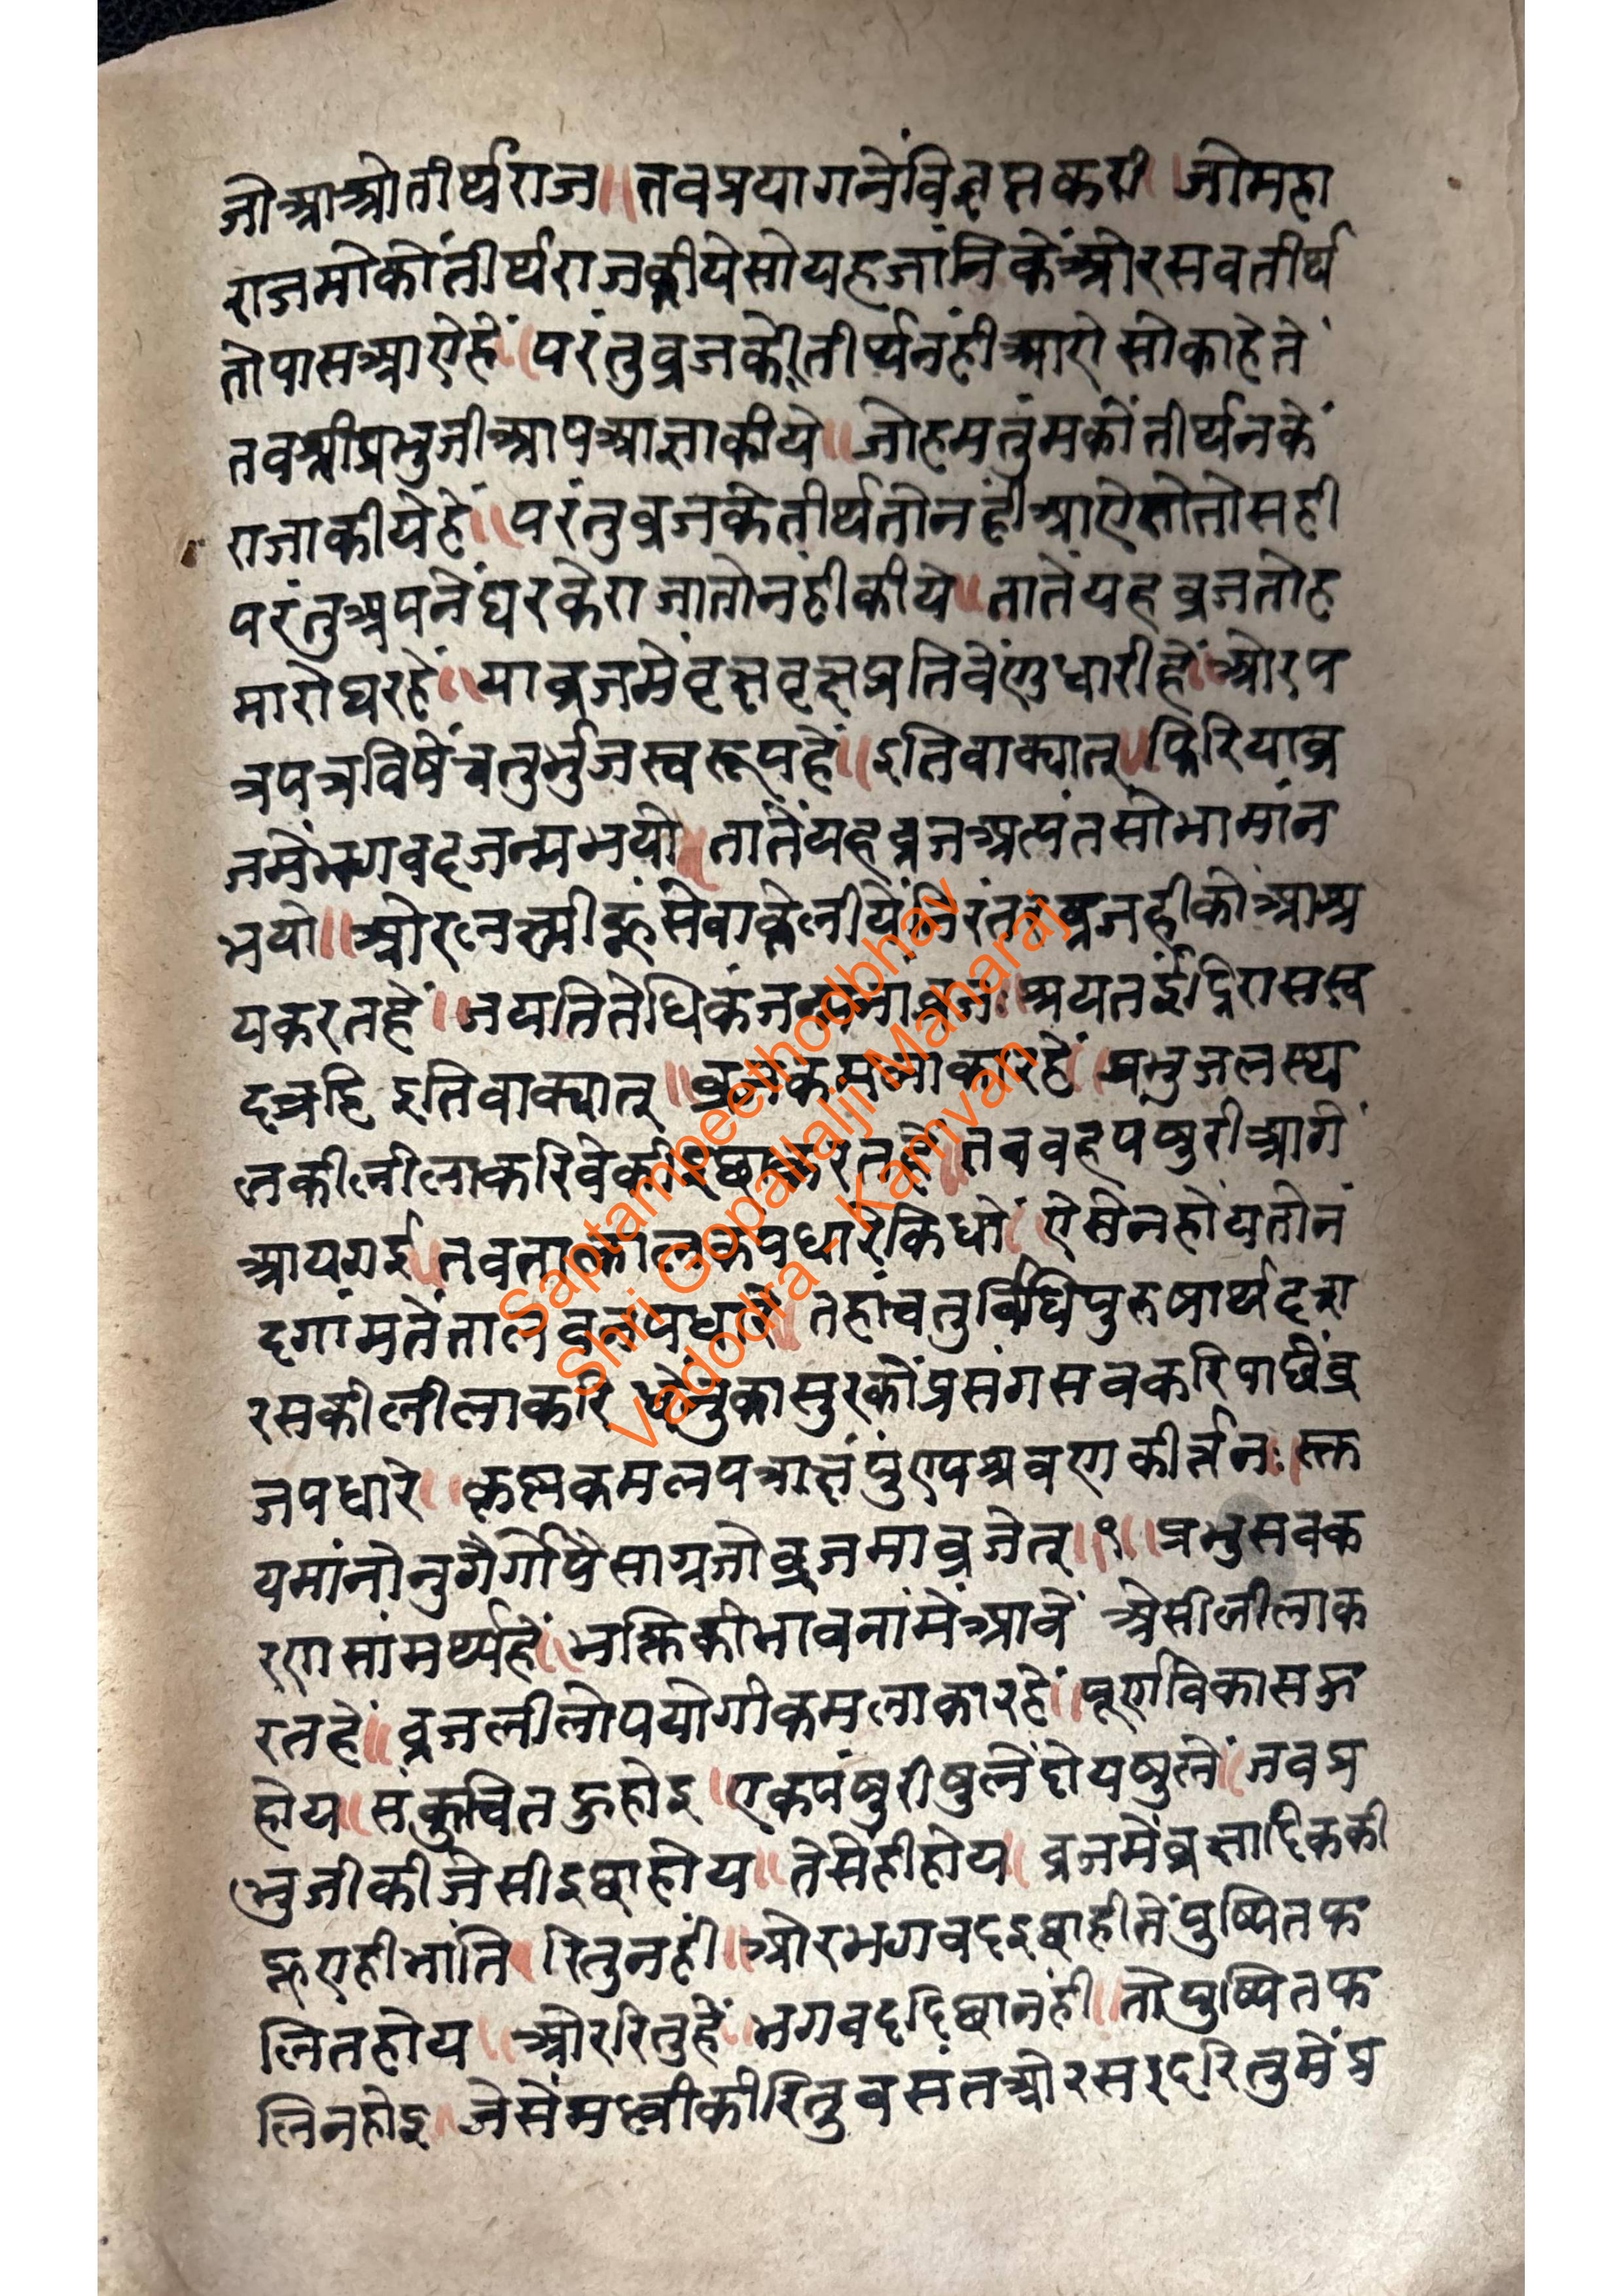 जोआओतीर्थराज॥तबप्रयागनेंविज्ञप्तकरी।जोमहा
राजमोकोंतीर्थराजकीयेसोयहजांनिकेंओरसबतीर्थ
तोपासआऐहें॥परंतुब्रजकेतीर्थनंहीआऐसोकाहेतें
तबश्रीप्रभुजीआपआज्ञाकीये॥जोहमतुमकोंतीर्थनकें
राजाकीयेहें॥परंतुब्रजकेतीर्थतोनंहीआऐसोतोसही
परंतुअपनेंघरकेराजातोनंहीकीये॥तातेंयहब्रजतोह
मारोघरहें॥याब्रजमेंवृक्षवृक्षप्रतिवेंणुधारीहें॥ओरप
त्रपत्रविषेंचतुर्भुजस्वरूपहें॥इतिवाक्यात्॥फिरियाब्र
जमेंभगवदजन्मभयो॥तातेंयहब्रजअत्यंतसोभामांन
भयो॥ओरलक्ष्मीहूंसेवाकेलीयेंनिरंतरब्रजहीकोआश्र
यकरतहें॥जयतितेधिकंजन्मनांब्रजः॥श्रयतइंदिरासस्व
दत्रहिइतिवाक्यात्॥ब्रजकमलाकारहें॥प्रभुजलस्थ
लकीलीलाकरिवेकीइछाकरतहें॥तबवहपषुरीआगें
आयगई॥तबतालकपधारेकिधों॥ऐसेनहोयतोनं
दगांमतेंतालबनपधारे॥तहांचतुर्विधिपुरुषार्थदसा
रसकीलीलाकरिधेंनुकासुरकोंप्रसंगसबकरिपाछेंब्र
जपधारे॥कृष्णकमलपत्राक्षंपुंण्यश्रवणकीर्तनः॥स्तू
यमांनोनुगैर्गोपैसाग्रजोब्रजमाब्रजेत्॥९॥प्रभुसबक
रणसांमर्थ्यहें॥भक्तिकीभावनांमेंआवें॥ऐसीलीलाक
रतहें॥ब्रजलीलोपयोगीकमलाकारहें॥पूर्णविकासऊ
होय॥संकुचितऊहोइ॥एकपंषुरीषुलेंदोयषुलें॥जबप्र
भुजीकीजेसीइछाहोय॥तेसेंहीहोय॥ब्रजमेंब्रक्षादिककी
हूएहीभांति॥रितुनहीं॥ओरभगवदइछाहीतेंपुष्पितफ
लितहोय॥ओररितुहें॥भगवदइछानंही॥तोपुष्पितफ
लिनहोइ॥जेसेंमध्वीकीरितुबसंतओरसरदरितुमेंप्र
Saptampeethodbhav
Shri Gopallalji Maharaj
Vadodra - Kamvan